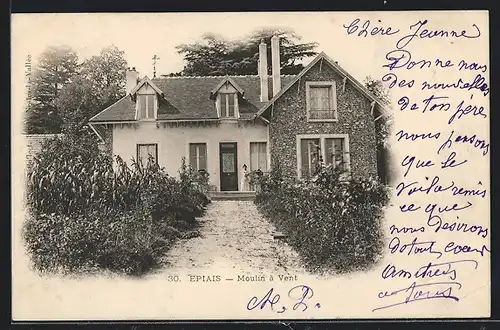 30. EPIAIS — Moulin à Vent
Chère Jeanne
Donne nous
des nouvelles
de ton père
nous pensons
que le
voilà remis
ce que
nous désirons
de tout cœur
amitiés
à tous